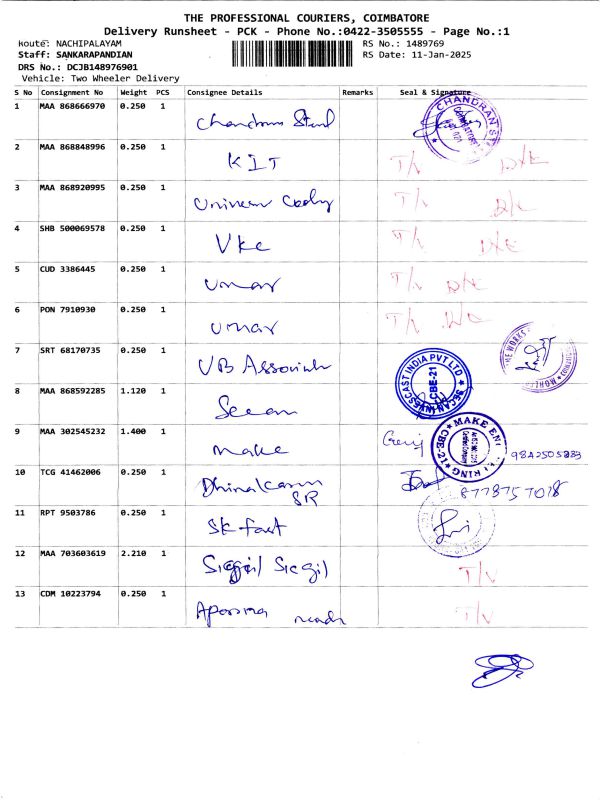 THE PROFESSIONAL COURIERS, COIMBATORE
Delivery Runsheet - PCK - Phone No.:0422-3505555 - Page No.:1
Route: NACHIPALAYAM
RS No.: 1489769
Staff: SANKARAPANDIAN
RS Date: 11-Jan-2025
DRS No.: DCJB148976901
Vehicle: Two Wheeler Delivery
S No Consignment No Weight PCS Consignee Details Remarks Seal & Signature
1 MAA 868666970 0.250 1 CHANDRAN S
2 MAA 868848996 0.250 1 KIT T/V D/E
3 MAA 868920995 0.250 1 T/V D/E
4 SHB 500069578 0.250 1 VKC T/V D/E
5 CUD 3386445 0.250 1 Umar T/V D/E
6 PON 7910930 0.250 1 Umar T/V
7 SRT 68170735 0.250 1 VB
8 MAA 868592285 1.120 1 SECAN INVESCAST INDIA PVT LTD CBE-21
9 MAA 302545232 1.400 1 make MAKE CBE-21
10 TCG 41462006 0.250 1 SR
11 RPT 9503786 0.250 1 SK fast
12 MAA 703603619 2.210 1 T/V
13 CDM 10223794 0.250 1 T/V